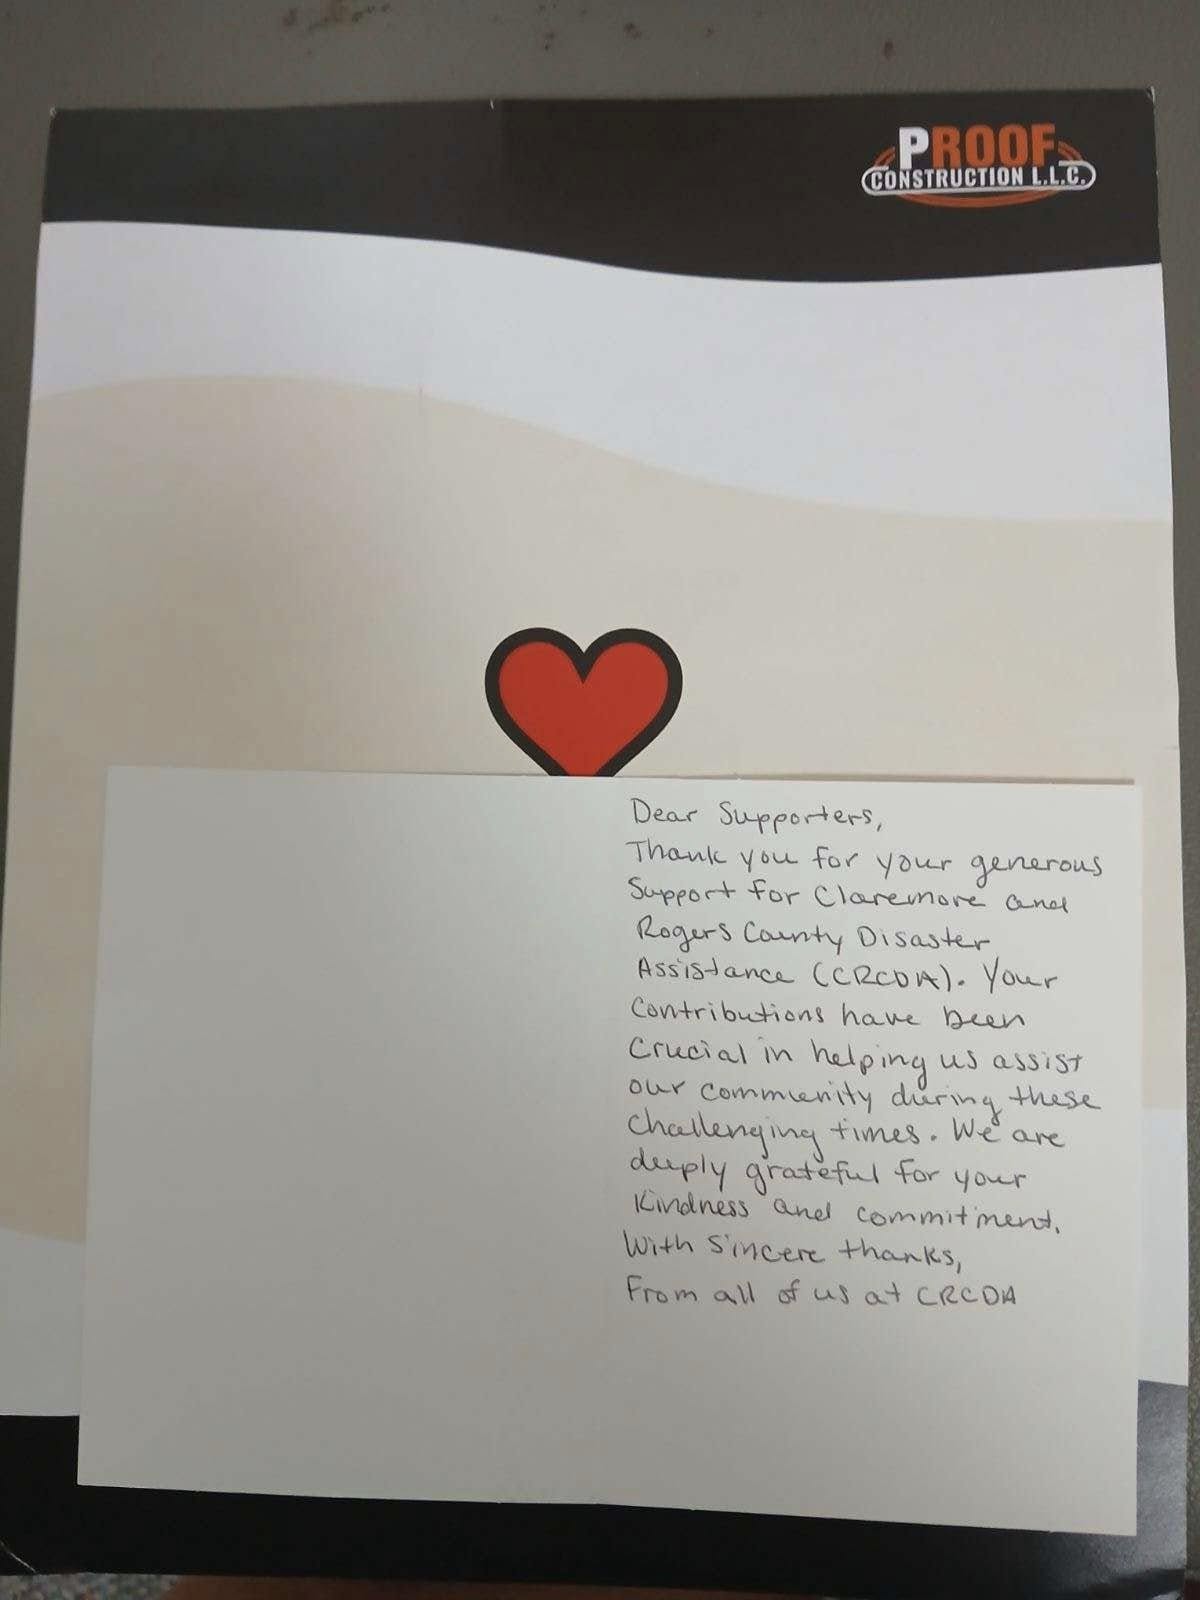 PROOF
CONSTRUCTION L.L.C.
Dear Supporters,
Thank you for your generous
Support for Claremore and
Rogers County Disaster
Assistance (CRCDA). Your
Contributions have been
Crucial in helping us assist
our community during these
Challenging times. We are
deeply grateful for your
Kindness and commitment.
With Sincere thanks,
From all of us at CRCDA